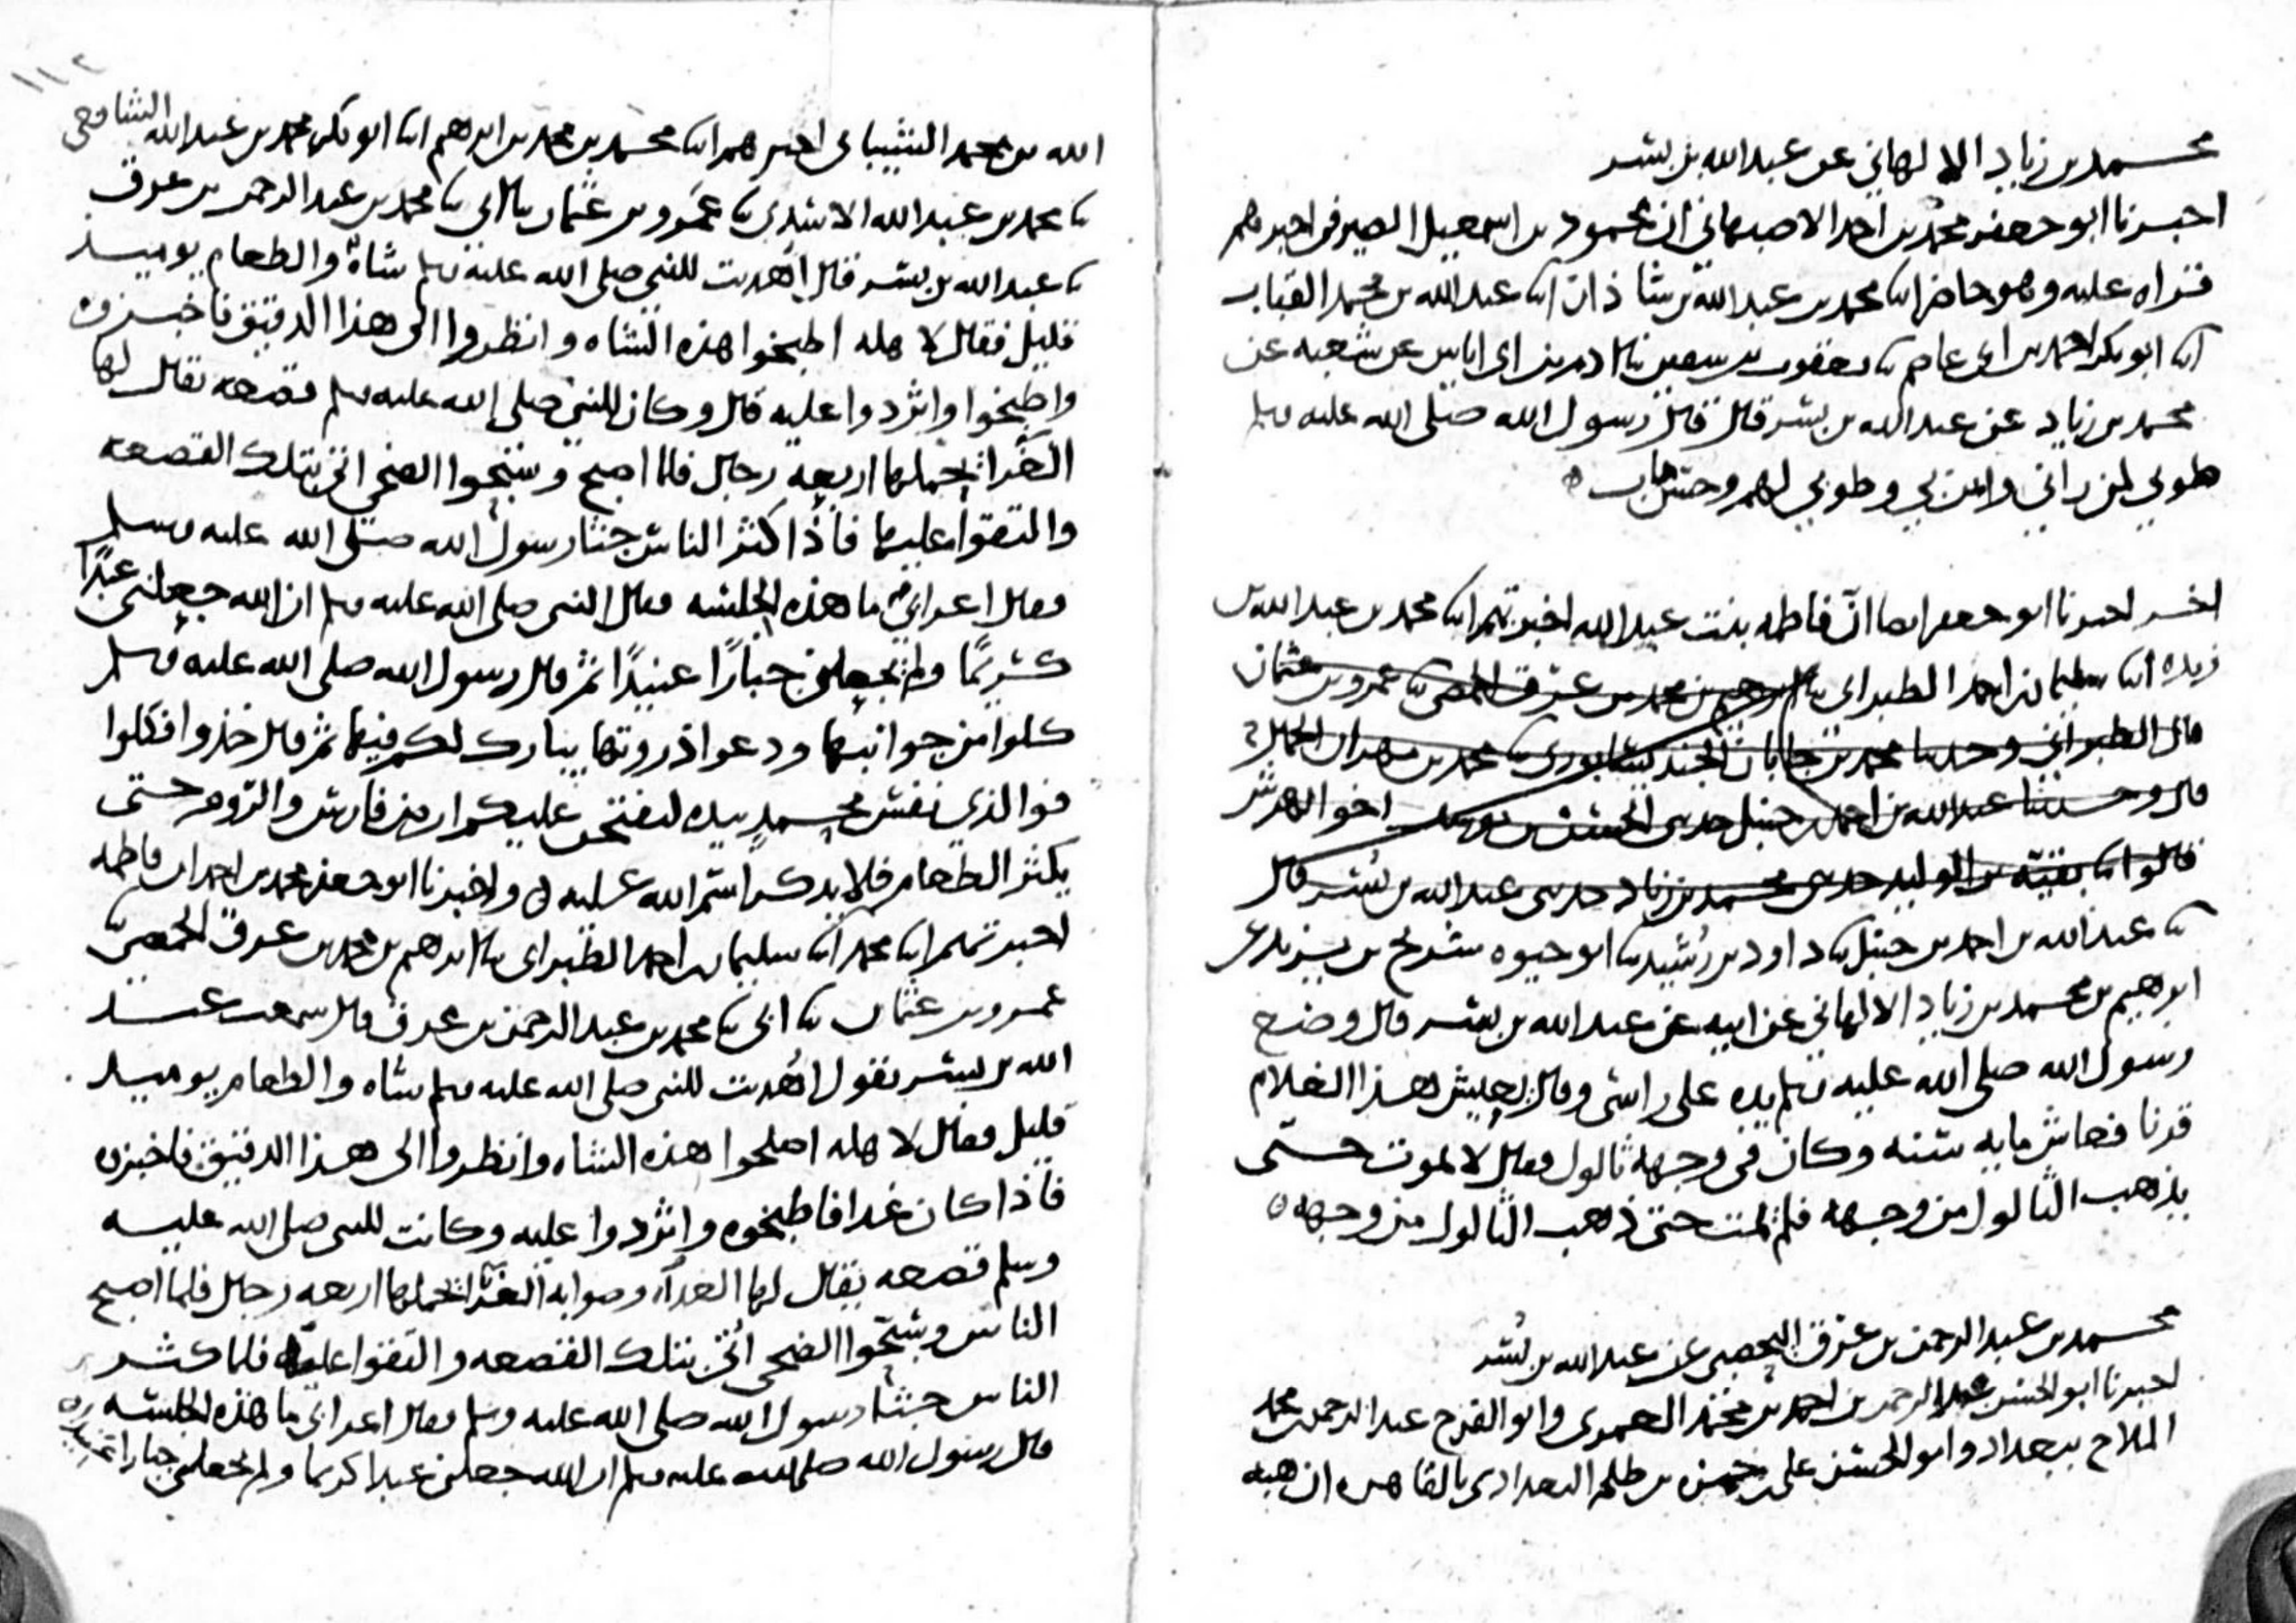 محمد بن زياد الالهاني عن عبد الله بن بسر
اخبرنا ابو جعفر محمد بن احمد الاصبهاني ان محمود بن اسمعيل الصيرفي اخبرهم
قراه عليه وهو حاضر ابنا محمد بن عبد الله بن شاذان ابنا عبد الله بن محمد القباب
ابنا ابو بكر احمد بن ابي عاصم ثنا يعقوب بن سفين ثنا ادم بن ابي اياس عن شعبه عن
محمد بن زياد عن عبد الله بن بسر قال قال رسول الله صلى الله عليه وسلم
طوبي لمن راني وامن بي وطوبي لهم وحسن ماب ه
اخر اخبرنا ابو جعفر ايضا ان فاطمه بنت عبد الله اخبرتهم ابنا محمد بن عبد الله بن
ريذه ابنا سليمان بن احمد الطبراني ثنا ابرهيم بن محمد بن عرق الحمصي ثنا عمرو بن عثمان
قال الطبراني وحدثنا محمد بن جابان الجنديسابوري ثنا محمد بن مهران الجمال ح
قال وحدثنا عبد الله بن احمد بن حنبل حدثني الحسن بن اخو الهرش
قالوا ثنا بقية بن الوليد حدثني محمد بن زياد حدثني عبد الله بن بسر قال
ثنا عبد الله بن احمد بن حنبل ثنا داود بن رشيد ثنا ابو حيوه شريح بن يزيد عن
ابرهيم بن محمد بن زياد الالهاني عن ابيه عن عبد الله بن بسر قال وضع
رسول الله صلى الله عليه وسلم يده على راسي وقال يعيش هذا الغلام
قرنا فعاش مايه سنه وكان في وجهه ثالول فقال لا يموت حتى
يذهب الثالول من وجهه فلم يمت حتى ذهب الثالول من وجهه ه
محمد بن عبد الرحمن بن عرق اليحصبي عن عبد الله بن بسر
اخبرنا ابو الحسن عبد الرحمن بن احمد بن محمد العمري وابو الفرج عبد الرحمن بن محمد
الملاح ببغداد وابو الحسن علي بن حمزه بن طلحه البغدادي بالقاهره ان هبه
١١٢
الله بن محمد الشيباني اخبرهم ابنا محمد بن محمد بن ابرهيم ابنا ابو بكر محمد بن عبد الله الشافعي
ثنا محمد بن عبد الله الاسدي ثنا عمرو بن عثمان ثنا ابي ثنا محمد بن عبد الرحمن بن عرق
ثنا عبد الله بن بسر قال اهديت للنبي صلى الله عليه وسلم شاة والطعام يوميذ
قليل فقال لاهله اطبخوا هذه الشاه وانظروا الى هذا الدقيق فاخبزوه
واطبخوا واثردوا عليه قال وكان للنبي صلى الله عليه وسلم قصعه يقال لها
الغراء يحملها اربعه رجال فلما اصبح وسبحوا الضحى اتي بتلك القصعه
والتقوا عليها فاذا كثر الناس جثا رسول الله صلى الله عليه وسلم
فقال اعرابي ما هذه الجلسه فقال النبي صلى الله عليه وسلم ان الله جعلني عبدًا
كريمًا ولم يجعلني جبارًا عنيدًا ثم قال رسول الله صلى الله عليه وسلم
كلوا من جوانبها ودعوا ذروتها يبارك لكم فيها ثم قال خذوا فكلوا
فوالذي نفس محمد بيده ليفتحن عليكم ارض فارس والروم حتى
يكثر الطعام فلا يذكر اسم الله عليه ه واخبرنا ابو جعفر محمد بن احمد ان فاطمه
اخبرتهم ابنا محمد ابنا سليمان بن احمد الطبراني ثنا ابرهيم بن محمد بن عرق الحمصي
عمرو بن عثمان ثنا ابي ثنا محمد بن عبد الرحمن بن عرق قال سمعت عبد
الله بن بسر يقول اهديت للنبي صلى الله عليه وسلم شاه والطعام يوميذ
قليل فقال لاهله اصلحوا هذه الشاه وانظروا الى هذا الدقيق فاخبزه
فاذا كان غدا فاطبخوه واثردوا عليه وكانت للنبي صلى الله عليه
وسلم قصعه يقال لها الغداء وصوابه الغراء يحملها اربعه رجال فلما اصبح
الناس وسبحوا الضحى اتي بتلك القصعه والتفوا عليها فلما كثر
الناس جثا رسول الله صلى الله عليه وسلم فقال اعرابي ما هذه الجلسه
قال رسول الله صلى الله عليه وسلم ان الله جعلني عبدا كريما ولم يجعلني جبارا عنيدا